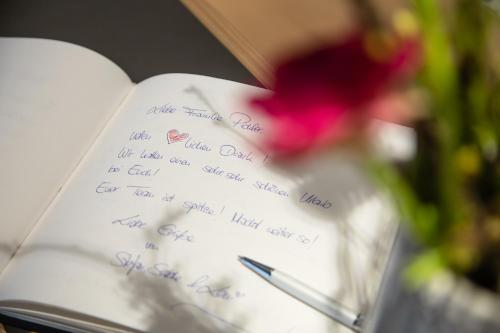 Liebe Familie
vielen ♥lichen Dank!
Wir hatten einen sehr sehr schönen Urlaub
bei Euch!
Euer Team ist spitze! Macht weiter so!
Liebe Grüße
von